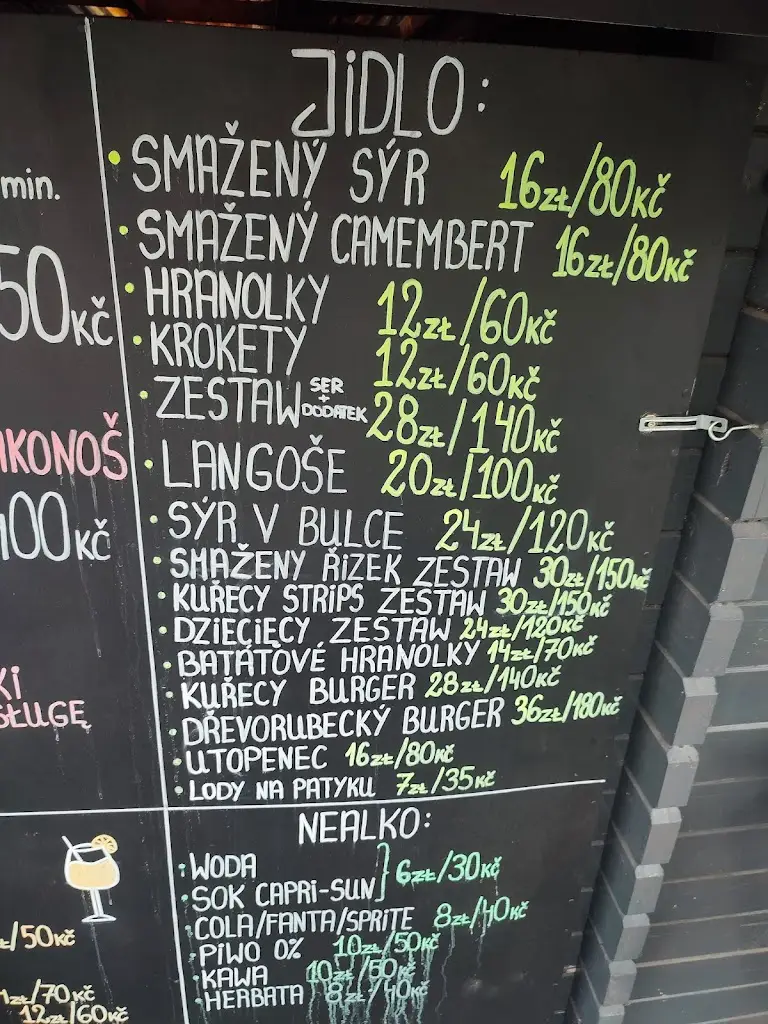 JiDLO:
• SMAŽENÝ SÝR 16zł/80Kč
• SMAŽENÝ CAMEMBERT 16zł/80Kč
• HRANOLKY 12zł/60Kč
• KROKETY 12zł/60Kč
• ZESTAW SER + DODATEK 28zł/140Kč
• LANGOŠE 20zł/100Kč
• SÝR V BULCE 24zł/120Kč
• SMAŽENY ŘIZEK ZESTAW 30zł/150Kč
• KUŘECY STRIPS ZESTAW 30zł/150Kč
• DZIECIĘCY ZESTAW 24zł/120Kč
• BATÁTOVÉ HRANOLKY 14zł/70Kč
• KUŘECY BURGER 28zł/140Kč
• DŘEVORUBECKÝ BURGER 36zł/180Kč
• UTOPENEC 16zł/80Kč
• LODY NA PATYKU 7zł/35Kč
NEALKO:
• WODA
• SOK CAPRI-SUN } 6zł/30Kč
• COLA/FANTA/SPRITE 8zł/40Kč
• PIWO 0% 10zł/50Kč
• KAWA 10zł/50Kč
• HERBATA 8zł/40Kč
min.
50Kč
KONOŠ
100Kč
KI
SŁUGĘ
zł/50Kč
zł/70Kč
12zł/60Kč